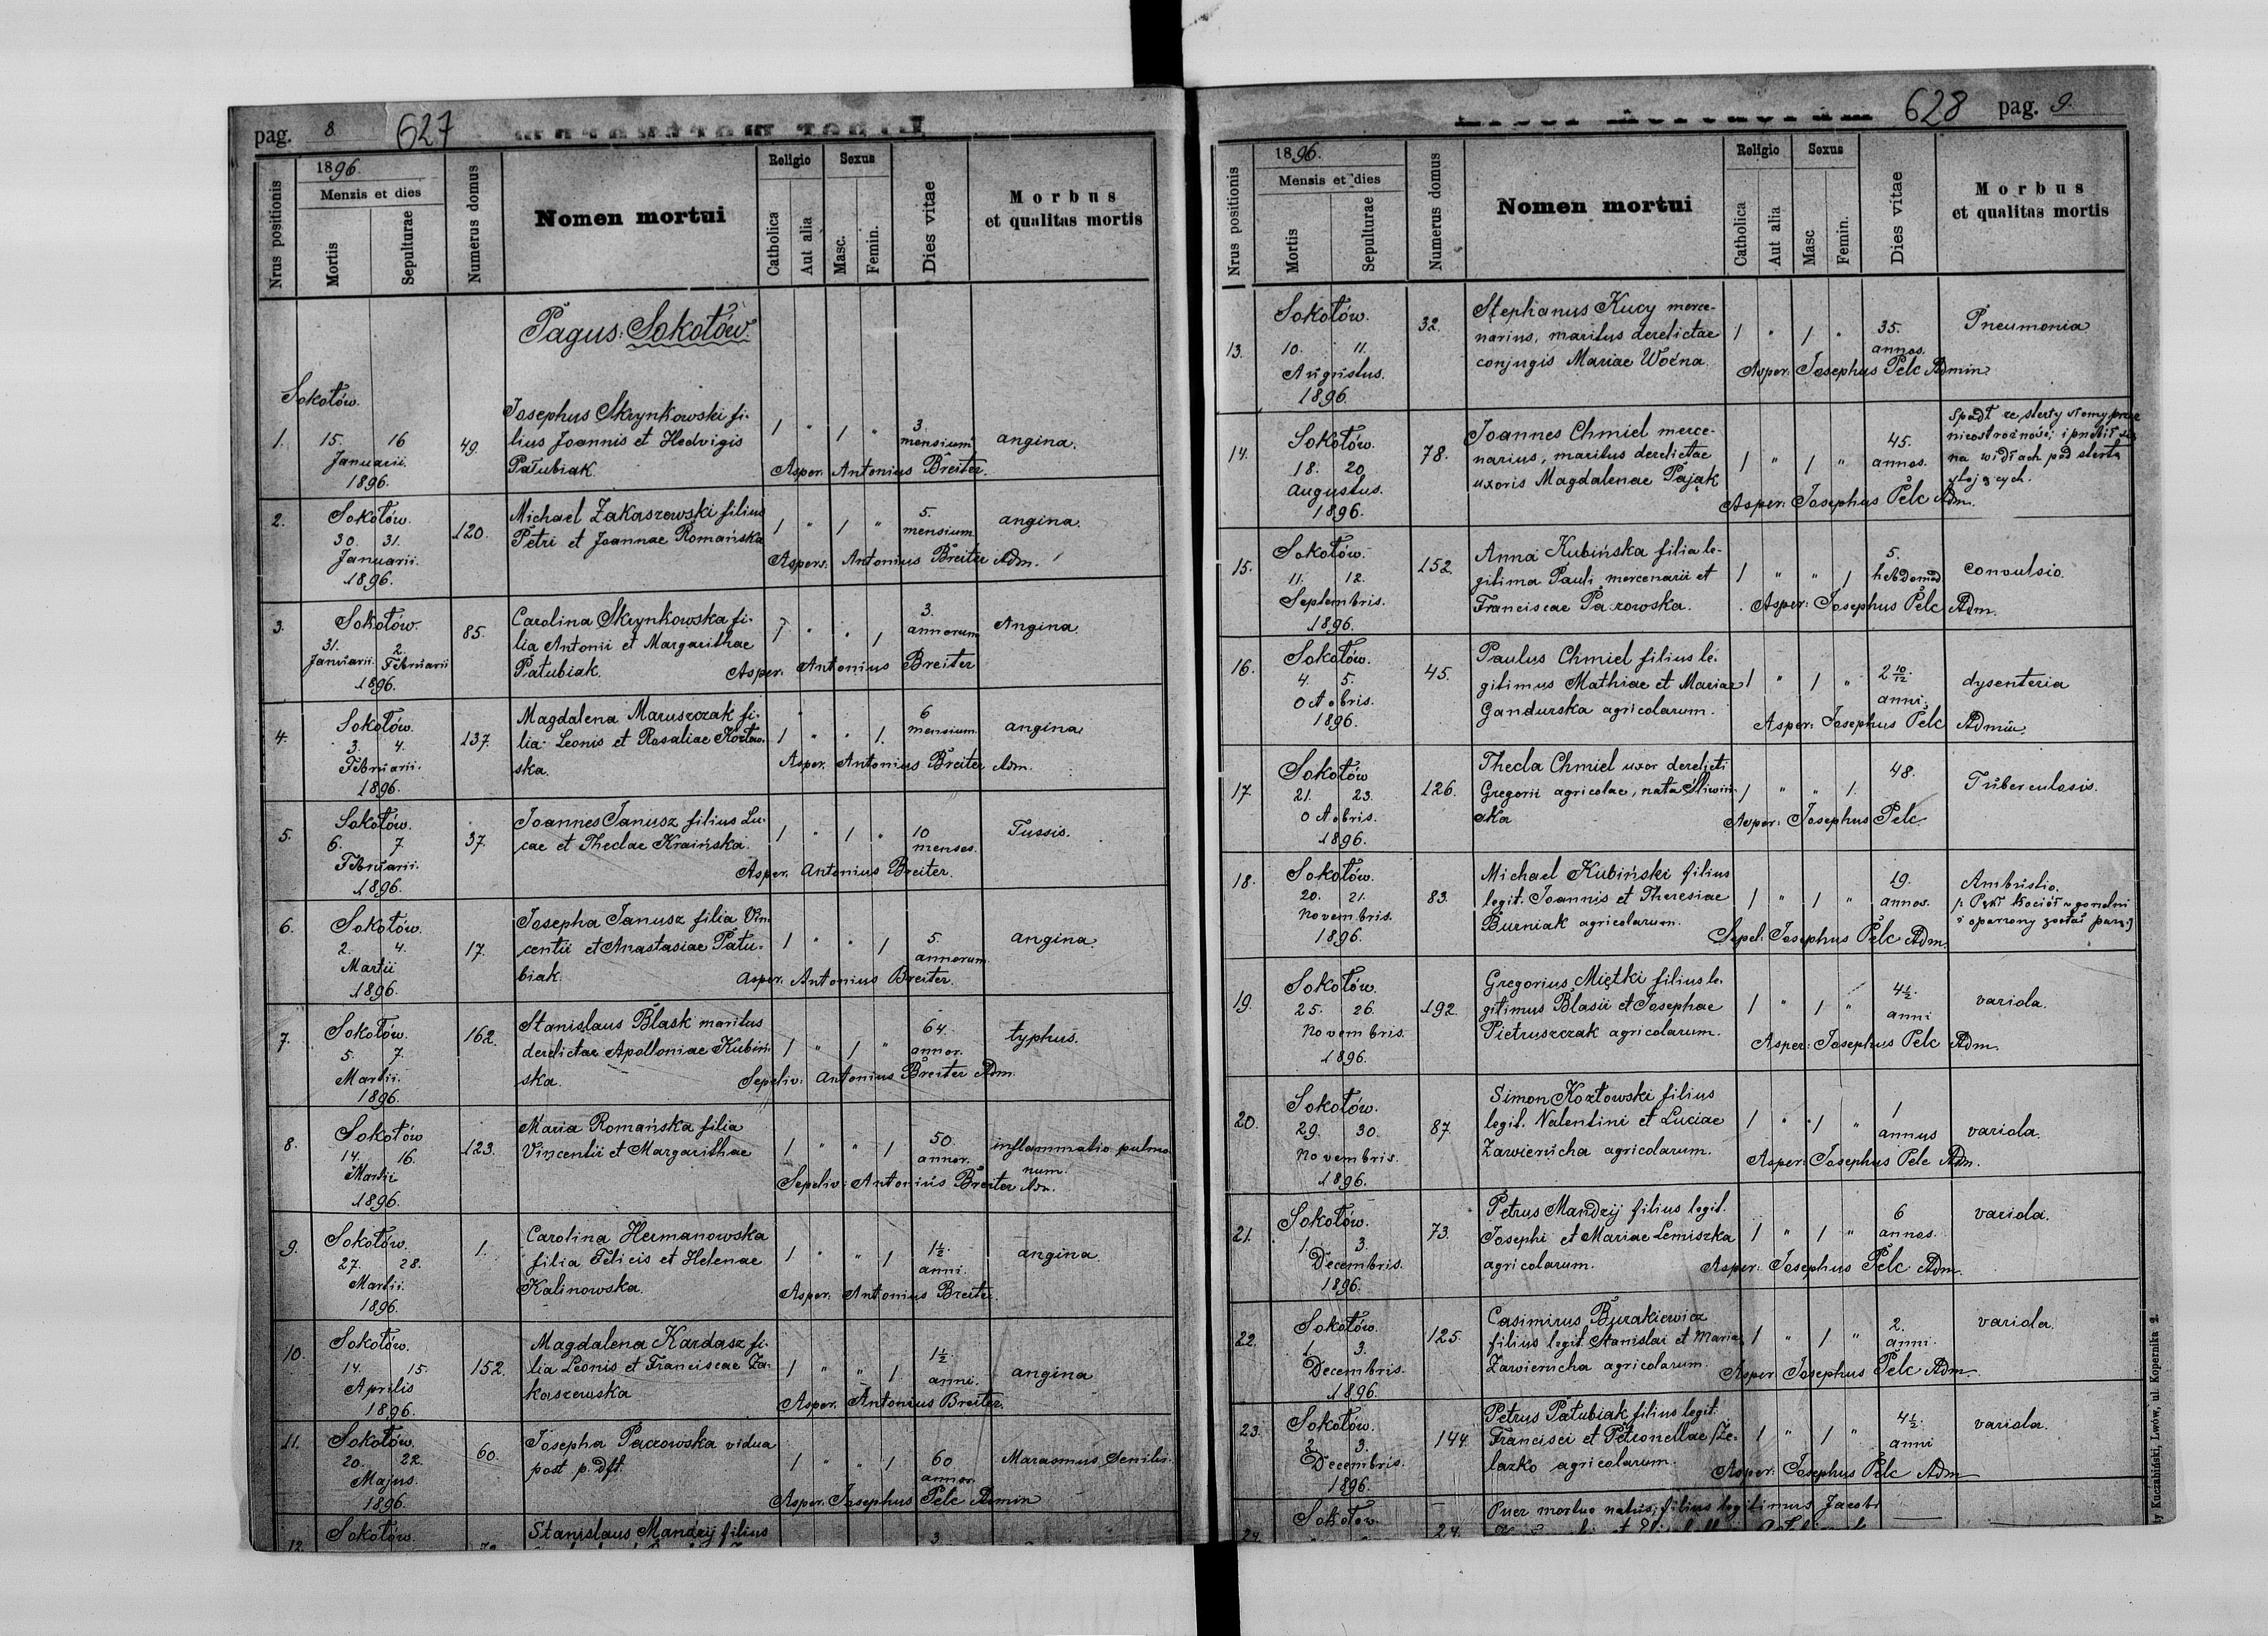 pag. 8. 627
Liber mortuorum
Nrus positionis
1896.
Mensis et dies
Mortis
Sepulturae
Numerus domus
Nomen mortui
Religio
Catholica
Aut alia
Sexus
Masc.
Femin.
Dies vitae
Morbus
et qualitas mortis
Pagus: Sokołów
Sokołów.
1. 15. 16 Januarii. 1896. 49.
Josephus Skrynkowski fi-
lius Joannis et Hedvigis
Pałubiak.
1 " 1 " 3. mensium angina.
Asper. Antonius Breiter.
2. Sokołów. 30. 31. Januarii. 1896. 120.
Michael Zakaszewski filius
Petri et Joannae Romańska
1 " 1 " 5. mensium angina.
Aspers. Antonius Breiter Adm.
3. Sokołów. 31. Januarii. 2. Februarii 1896. 85.
Carolina Skrynkowska fi-
lia Antonii et Margarithae
Pałubiak.
1 " " 1 3. annorum Angina
Asper. Antonius Breiter
4. Sokołów. 3. 4. Februarii. 1896. 137.
Magdalena Maruszczak fi-
lia Leonis et Rosaliae Kozłow-
ska.
1 " " 1. 6 mensium angina
Asper. Antonius Breiter Adm.
5. Sokołów. 6. 7. Februarii. 1896. 37.
Joannes Janusz filius Lu-
cae et Theclae Kraińska.
1 " 1 " 10 menses. Tussis.
Asper. Antonius Breiter.
6. Sokołów. 2. 4. Martii 1896. 17.
Josepha Janusz filia Vin-
centii et Anastasiae Pału-
biak.
1 " " 1 5. annorum. angina.
Asper. Antonius Breiter.
7. Sokołów. 5. 7. Martii. 1896. 162.
Stanislaus Blask maritus
derelictae Apolloniae Kubiń-
ska.
1 " 1 " 64. annor. typhus.
Sepeliv: Antonius Breiter Adm.
8. Sokołów 14. 16. Martii 1896. 123.
Maria Romańska filia
Vincentii et Margarithae
1 " " 1 50. annor. inflammatio pulmo-
num.
Sepeliv: Antonius Breiter Adm.
9. Sokołów. 27. 28. Martii. 1896. 1.
Carolina Hermanowska
filia Felicis et Helenae
Kalinowska.
1 " " 1 1½. anni. angina
Asper: Antonius Breiter.
10. Sokołów. 14. 15. Aprilis 1896. 152.
Magdalena Kardasz fi-
lia Leonis et Franciscae Za-
kaszewska
1 " " 1 1½ anni. angina
Asper. Antonius Breiter.
11. Sokołów. 20. 22. Majus. 1896. 60.
Josepha Paczowska vidua
post p. dft.
1 " " 1 60 annor. Marasmus senilis.
Asper. Josephus Pelc Admin
12. Sokołów.
Stanislaus Mandzij filius
3.
628 pag. 9.
Liber Mortuorum
Nrus positionis
1896.
Mensis et dies
Mortis
Sepulturae
Numerus domus
Nomen mortui
Religio
Catholica
Aut alia
Sexus
Masc
Femin.
Dies vitae
Morbus
et qualitas mortis
13. Sokołów. 10. 11. Augustus. 1896. 32.
Stephanus Kucy merce-
narius, maritus derelictae
conjugis Mariae Woźna.
1 " 1 " 35. annos. Pneumonia
Asper: Josephus Pelc Admin
14. Sokołów. 18. 20. Augustus. 1896. 78.
Joannes Chmiel merce-
narius, maritus derelictae
uxoris Magdalenae Pająk
1 " 1 " 45. annos.
Spadł ze sterty słomy przez
nieostrożność i przebił się
na widłach pod stertą
stojących.
Asper: Josephus Pelc Adm.
15. Sokołów. 11. 12. Septembris. 1896. 152.
Anna Kubińska filia le-
gitima Pauli mercenarii et
Franciscae Paczowska.
1 " " 1 5. hebdomad convulsio.
Asper: Josephus Pelc Adm.
16. Sokołów. 4. 5. Octobris. 1896. 45.
Paulus Chmiel filius le-
gitimus Mathiae et Mariae
Gandurska agricolarum.
1 " 1 " 2 10/12 anni. dysenteria
Asper: Josephus Pelc Admin.
17 Sokołów 21. 23. Octobris. 1896. 126.
Thecla Chmiel uxor derelicti
Gregorii agricolae, nata Śliwiń-
ska
1 " " 1. 48. Tuberculosis.
Asper: Josephus Pelc.
18. Sokołów. 20. 21. Novembris. 1896. 83.
Michael Kubiński filius
legit. Joannis et Theresiae
Burniak agricolarum.
1 " 1 " 19. annos. Ambustio.
/: Pękł kocioł w gorzelni
i oparzony został parą:/
Sepel: Josephus Pelc Adm.
19. Sokołów. 25. 26. Novembris. 1896. 192.
Gregorius Miętki filius le-
gitimus Blasii et Josephae
Pietruszczak agricolarum.
1 " 1 " 4½. anni variola.
Asper: Josephus Pelc Adm.
20. Sokołów. 29. 30. Novembris. 1896. 87.
Simon Kozłowski filius
legit. Valentini et Luciae
Zawierucha agricolarum.
1 " 1 " 1 annus variola.
Asper: Josephus Pelc Adm.
21. Sokołów. 1. 3. Decembris. 1896. 73.
Petrus Mandzij filius legit.
Josephi et Mariae Lemiszka
agricolarum.
1 " 1 " 6 annos. variola.
Asper: Josephus Pelc Adm.
22. Sokołów. 1 3. Decembris. 1896. 125.
Casimirus Burakiewicz
filius legit. Stanislai et Mariae
Zawierucha agricolarum.
1 " 1 " 2. anni. variola.
Asper Josephus Pelc Adm.
23. Sokołów. 2. 3. Decembris. 1896. 144.
Petrus Pałubiak filius legit.
Francisci et Petronellae Że-
lazko agricolarum.
1 " 1 " 4½. anni variola.
Asper: Josephus Pelc Adm
24. Sokołów. 24.
Puer mortuo natus, filius legitimus Jacobi
Kuczabiński, Lwów, ul. Kopernika 2.